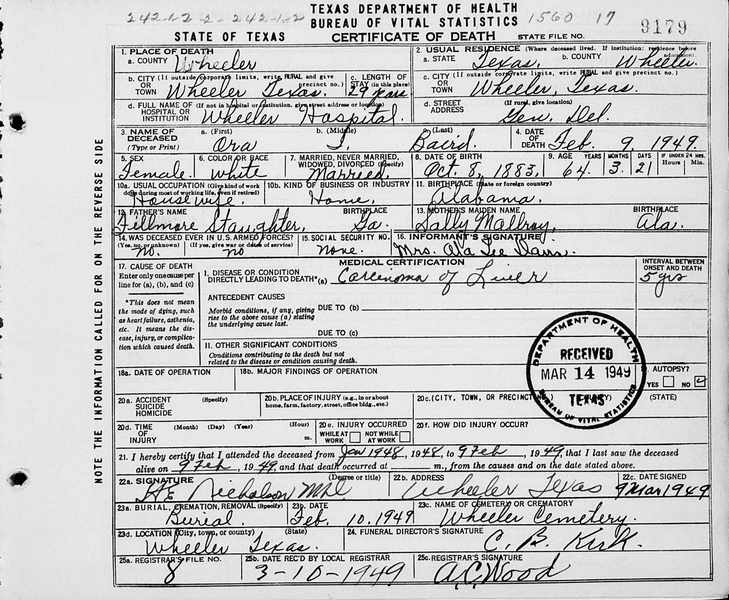 242-1-2 2 - 242-1-2
TEXAS DEPARTMENT OF HEALTH
BUREAU OF VITAL STATISTICS
1560 17
9179
STATE OF TEXAS
CERTIFICATE OF DEATH
STATE FILE NO.
1. PLACE OF DEATH
a. COUNTY Wheeler
2. USUAL RESIDENCE (Where deceased lived. If institution: residence before admission)
a. STATE Texas. b. COUNTY Wheeler.
b. CITY (If outside corporate limits, write RURAL and give precinct no.)
OR TOWN Wheeler Texas.
c. LENGTH OF STAY (in this place) 29 years
c. CITY (If outside corporate limits, write RURAL and give precinct no.)
OR TOWN Wheeler, Texas.
d. FULL NAME OF (If not in hospital or institution, give street address or location)
HOSPITAL OR INSTITUTION Wheeler Hospital.
d. STREET ADDRESS (If rural, give location)
Gen. Del.
3. NAME OF DECEASED (Type or Print)
a. (First) Ora
b. (Middle) T.
c. (Last) Baird.
4. DATE OF DEATH Feb. 9, 1949.
5. SEX Female.
6. COLOR OR RACE White
7. MARRIED, NEVER MARRIED, WIDOWED, DIVORCED (Specify) Married.
8. DATE OF BIRTH Oct. 8, 1883.
9. AGE YEARS 64. MONTHS 3. DAYS 21
IF UNDER 24 HRS. Hours Min.
10a. USUAL OCCUPATION (Give kind of work done during most of working life, even if retired)
Housewife.
10b. KIND OF BUSINESS OR INDUSTRY
Home,
11. BIRTHPLACE (State or foreign country)
Alabama.
12. FATHER'S NAME BIRTHPLACE
Fillmore Slaughter, Ga.
13. MOTHER'S MAIDEN NAME BIRTHPLACE
Sally Mallroy, Ala.
14. WAS DECEASED EVER IN U.S. ARMED FORCES?
(Yes, no, or unknown) (If yes, give war or dates of service)
no. no
15. SOCIAL SECURITY NO.
none.
16. INFORMANT'S SIGNATURE
Mrs.
17. CAUSE OF DEATH
Enter only one cause per line for (a), (b), and (c)
*This does not mean the mode of dying, such as heart failure, asthenia, etc. It means the disease, injury, or complication which caused death.
MEDICAL CERTIFICATION
INTERVAL BETWEEN ONSET AND DEATH
I. DISEASE OR CONDITION DIRECTLY LEADING TO DEATH* (a) Carcinoma of Liver
5 yrs
ANTECEDENT CAUSES
Morbid conditions, if any, giving rise to the above cause (a) stating the underlying cause last.
DUE TO (b)
DUE TO (c)
II. OTHER SIGNIFICANT CONDITIONS
Conditions contributing to the death but not related to the disease or condition causing death.
DEPARTMENT OF HEALTH
RECEIVED
MAR 14 1949
TEXAS
BUREAU OF VITAL STATISTICS
18a. DATE OF OPERATION
18b. MAJOR FINDINGS OF OPERATION
AUTOPSY?
YES NO
20a. ACCIDENT SUICIDE HOMICIDE (Specify)
20b. PLACE OF INJURY (e.g., in or about home, farm, factory, street, office bldg., etc.)
20c. (CITY, TOWN, OR PRECINCT (STATE)
20d. TIME OF INJURY (Month) (Day) (Year) (Hour) m.
20e. INJURY OCCURRED
WHILE AT WORK NOT WHILE AT WORK
20f. HOW DID INJURY OCCUR?
21. I hereby certify that I attended the deceased from Jan 1948, 1948, to 9 Feb, 1949, that I last saw the deceased
alive on 9 Feb, 1949, and that death occurred at m., from the causes and on the date stated above.
22a. SIGNATURE (Degree or title)
HE Nicholson MD
22b. ADDRESS
Wheeler Texas
22c. DATE SIGNED
9 Mar 1949
23a. BURIAL, CREMATION, REMOVAL (Specify)
Burial.
23b. DATE
Feb. 10, 1949
23c. NAME OF CEMETERY OR CREMATORY
Wheeler Cemetery.
23d. LOCATION (City, town, or county) (State)
Wheeler Texas.
24. FUNERAL DIRECTOR'S SIGNATURE
C. B. Kirk.
25a. REGISTRAR'S FILE NO.
8
25b. DATE REC'D BY LOCAL REGISTRAR
3-10-1949
25c. REGISTRAR'S SIGNATURE
A.C. Wood
NOTE THE INFORMATION CALLED FOR ON THE REVERSE SIDE